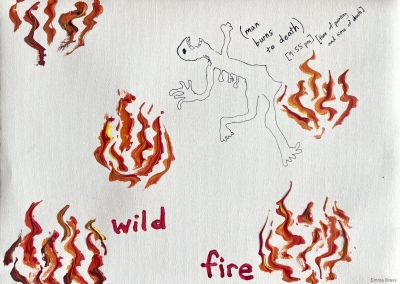 (man
burns
to death)
[9:55pm] [time of painting
and time of death]
wild
fire
Emma Brass